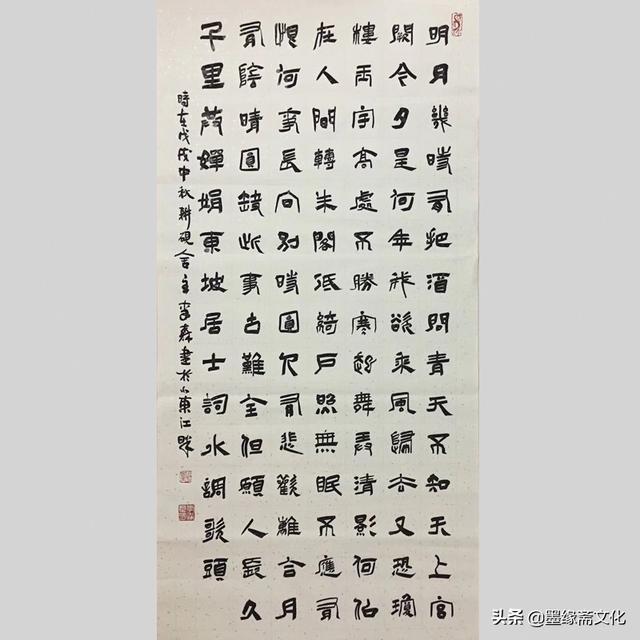 明月幾時有把酒問青天不知天上宮
闕今夕是何年我欲乘風歸去又恐瓊
樓玉宇高處不勝寒起舞弄清影何似
在人間轉朱閣低綺戶照無眠不應有
恨何事長向別時圓人有悲歡離合月
有陰晴圓缺此事古難全但願人長久
千里共嬋娟東坡居士詞水調歌頭
時在戊戌中秋耕硯舍主李書於山東江
头条 @墨缘斋文化